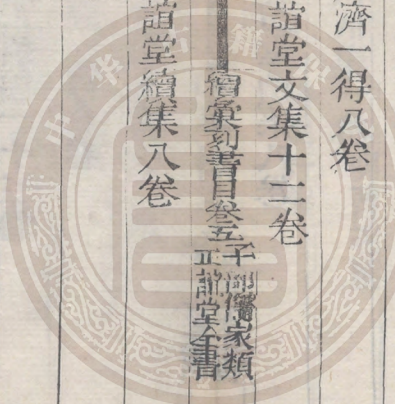 濟一得八卷
誼堂文集十二卷
續彙刻書目卷五
子儒家類
正誼堂全書
誼堂續集八卷